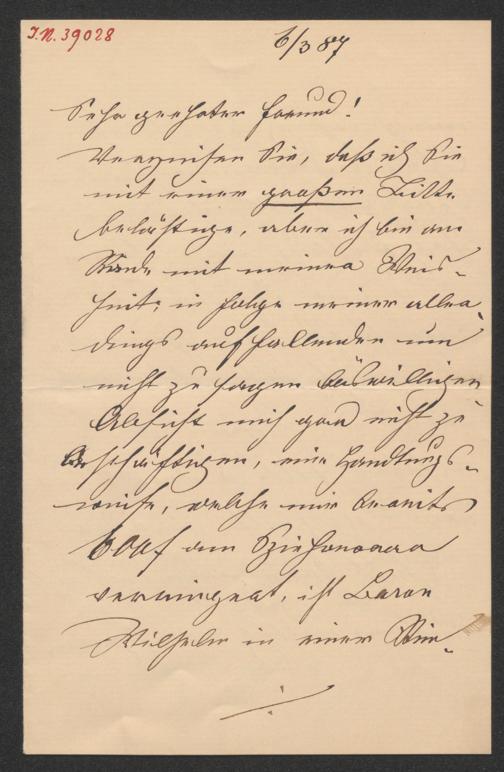 I.N. 39028
6/3 87
Sehr geehrter Freund!
Verzeihen Sie, daß ich Sie
mit einer großen Bitte
belästige, aber ich bin am
Ende mit meiner Weis-
heit; in Folge meiner aller-
dings auffallenden um
nicht zu sagen böswilligen
Absicht mich gar nicht zu
beschäftigen, eine Handlungs-
weise, welche mir bereits
600 f an Spielhonorar
verringert, ist Baron
Wilhelm in einer